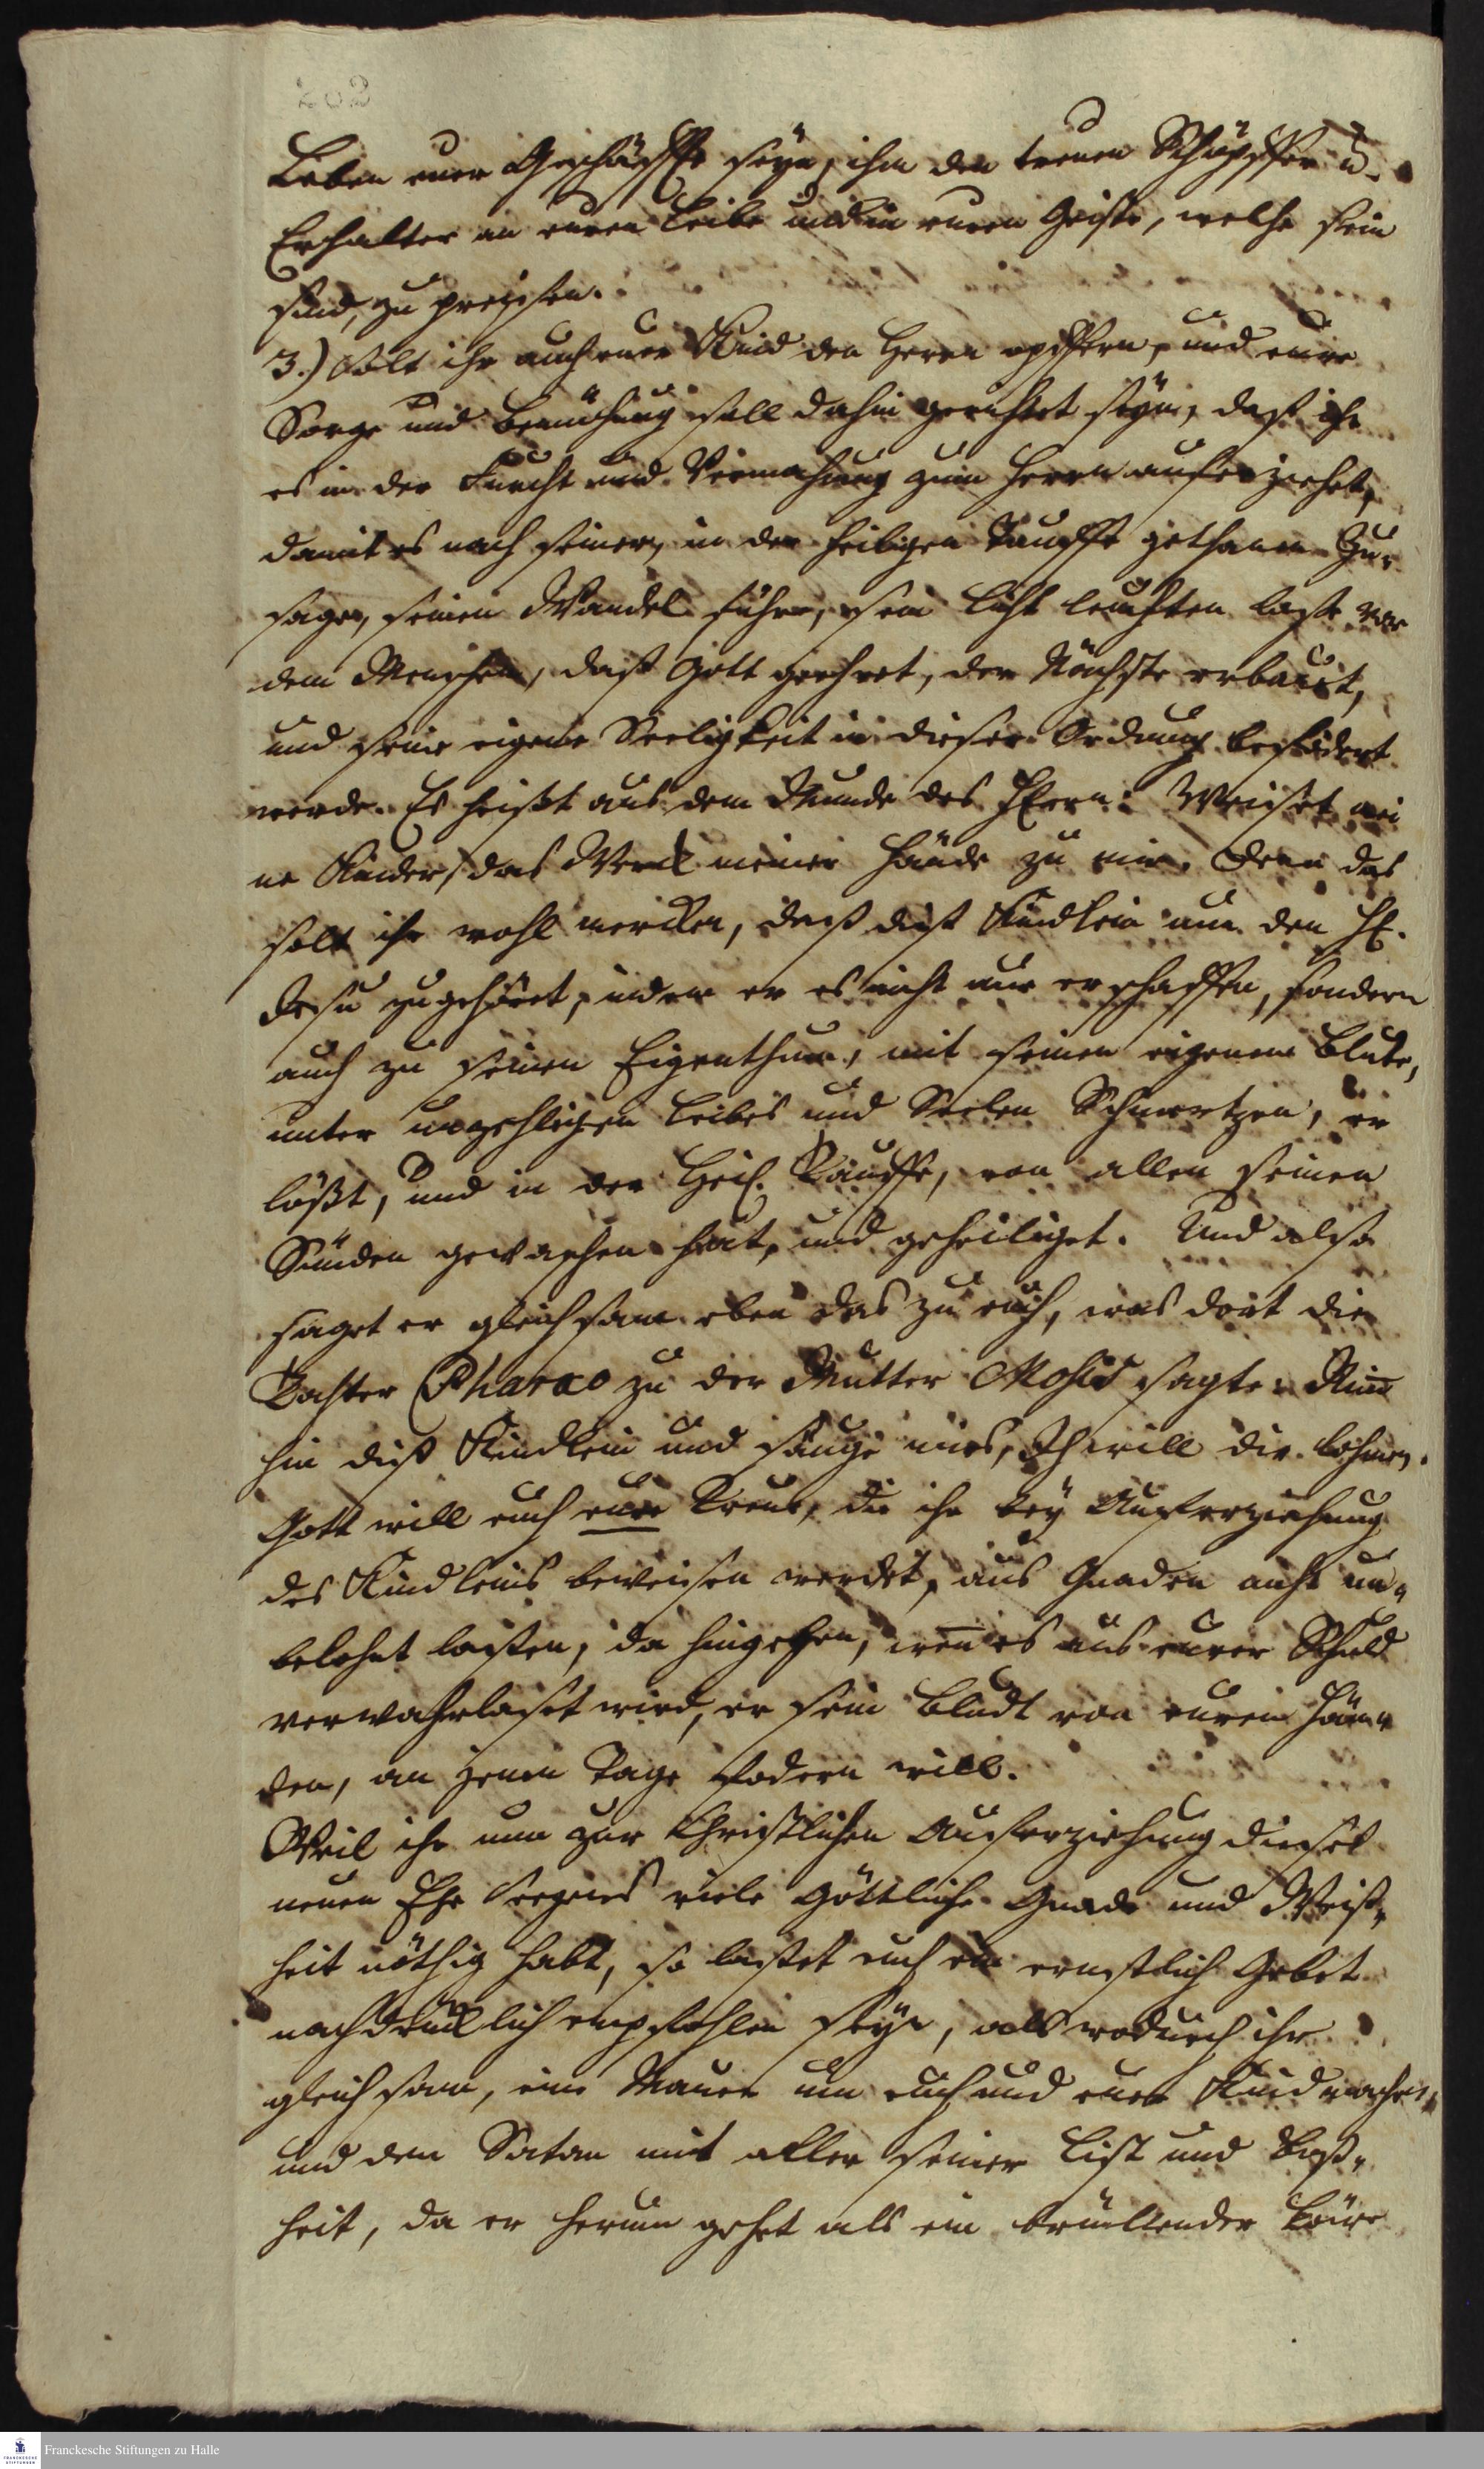 202
Leben euer Geschäffte seyn, ihm den treuen Schöpffer u.
Erhalter an euren Leibe und in euren Geiste, welche sein
sind, zu preisen.
3.) Solt ihr auch euer Kind den Herrn opffern, und eure
Sorge und Bemühung soll dahin gerichtet seyn, daß ihr
es in der Furcht und Vermahnung zum Herrn auferziehet,
damit es nach seiner, in der heiligen Tauffe gethanen Zu-
sage, seinen Wandel führe, sein Licht leuchten laße vor
dem Menschen, daß Gott geehret, der Nächste erbauet,
und seine eigene Seeligkeit in dieser Ordnung befördert
werde. Es heißt aus dem Munde des HErrn: Weiset mei
ne Kinder, das Werck meiner Hände zu mir. Denn das
solt ihr wohl mercken, daß diß Kindlein nun den HE.
Jesu zugehöret, indem er es nicht nur erschaffen, sondern
auch zu seinen Eigenthum, mit seinen eigenen Blute,
unter unzehligen Leibes und Seelen Schmertzen, er
lößt, und in der Heil. Tauffe, von allen seinen
Sünden gewaschen hat, und geheiliget. Und also
saget er gleichsam eben das zu euch, was dort die
Tochter Pharao zu der Mutter Mosis sagte: Nim
hin diß Kindlein und säuge mirs, Ich will dir lohnen.
Gott will euch eure Treue, die ihr bey Auferziehung
des Kindleins beweisen werdet, aus Gnaden nicht un-
belohnt lassen, da hingegen, wen es aus eurer Schuld
verwahrlaset wird, er sein Bludt von euren Hän-
den, an jenen Tage fodern will.
Weil ihr nun zur Christlichen Auferziehung dieses
neuen Ehe Seegens viele Göttliche Gnade und Weiß-
heit nöthig habt, so lasset euch ein ernstlich Gebet
nachdrücklich empfohlen seyn, als wodurch ihr
gleichsam, eine Mauer um euch und euer Kind machet,
und den Satan mit aller seiner List und Boß-
heit, da er herum gehet als ein brüllender Löwe
Franckesche Stiftungen zu Halle